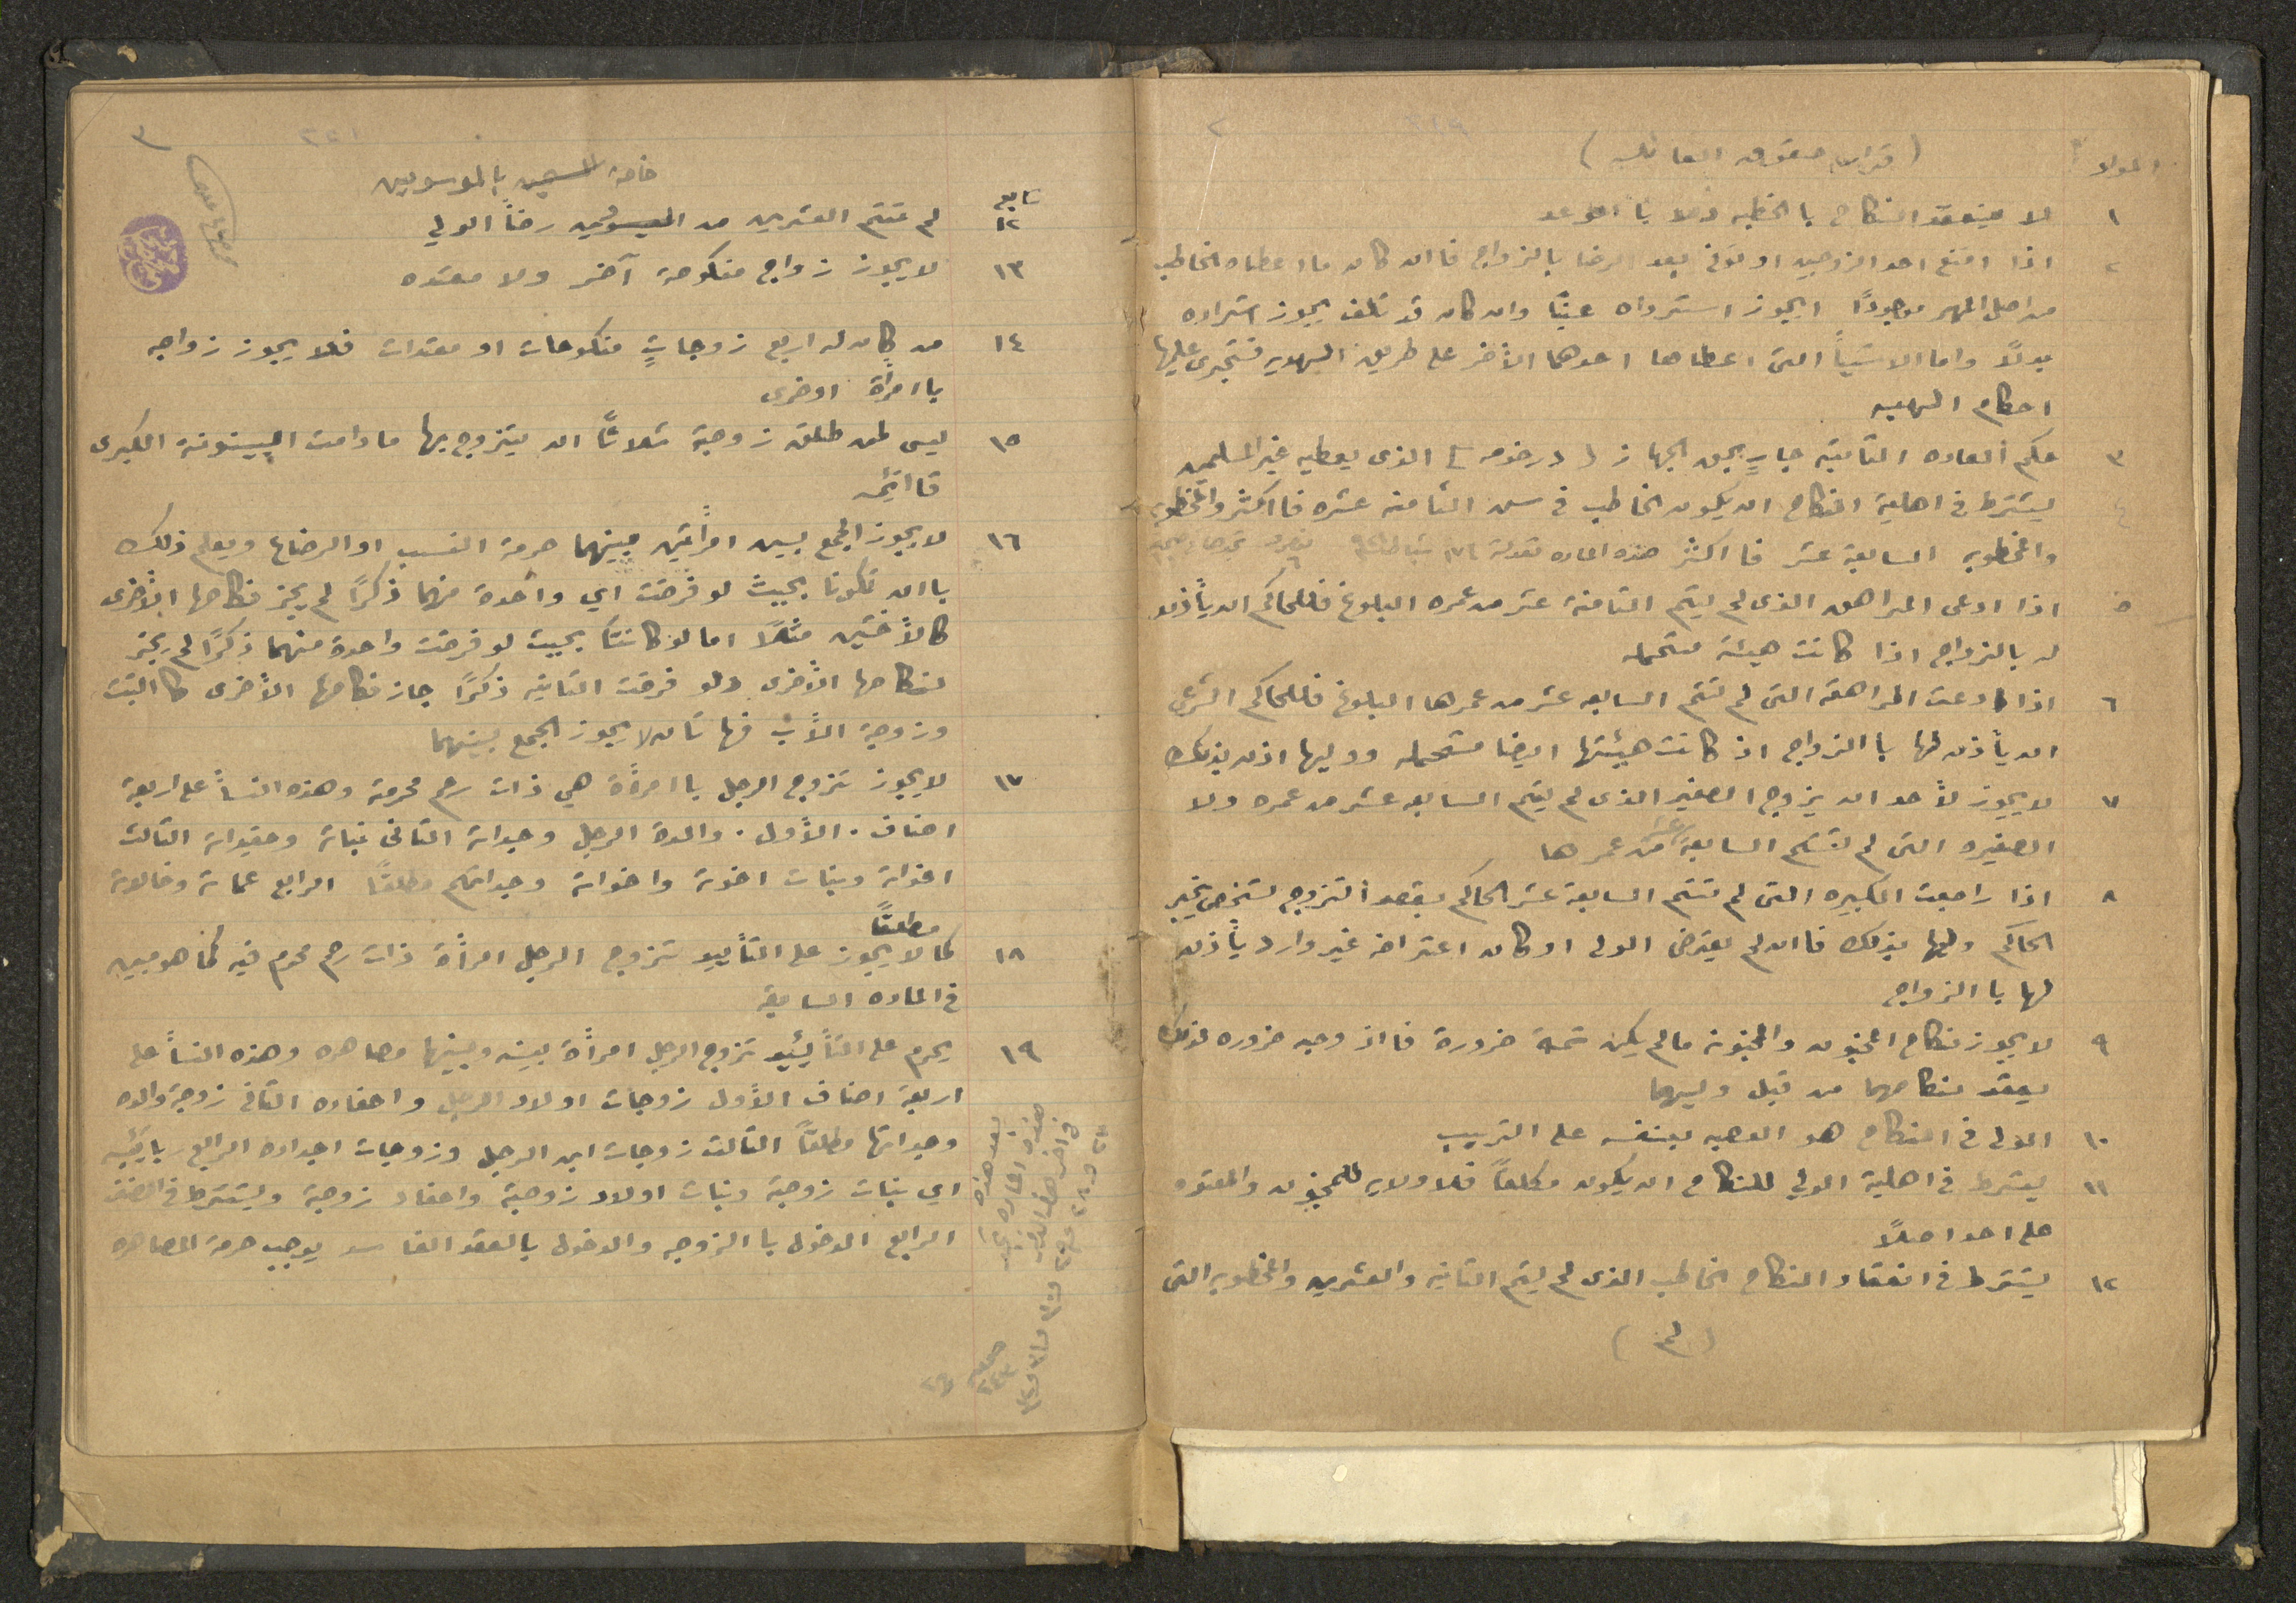 المواد
(قرار حقوق العائله)
١ لا ينعقد النكاح بالخطبه ولا باالوعد
٢ اذا امتنع احد الزوجين او توفى بعد الرضا بالزواج فاان كان ما اعطاه الخاطب
من اصل المهر موجودًا ايجوز استرداه عينًا وان كان قد تلف يجوز استراده
بدلًا واما الاشيأ التى اعطاها احدهما الأخر على طريق الهديه فتجرى عليها
احكام الهبه
٣ حكم العاده التأمية جارٍ بحق الجهاز (درخومه) الذى يعطيه غير المسلمين
٤ يشترط فى اهلية النكاح ان يكون الخاطب فى سن الثامنه عشره فااكثر والمخطوبه
والمخطوبه السابعة عشر فااكثر هذه الماده
٥ اذا ادعى المراهق الذى لم يتم الثامنة عشر من عمره البلوغ فللحاكم ان يأذن
له بالزواج اذا كانت هيئته متحمله
٦ اذا ادعت المراهقه التى لم تتم السابعه عشر من عمرها البلوغ فللحاكم الشرعى
ان يأذن لها باالزواج اذ كانت هيئتها ايضا متحمله ووليها اذن بذلك
٧ لا يجوز لأحد ان يزوج الصغير الذى لم يتم السابعه عشر من عمره ولا
الصغيره التى لم تتم السابعة عشر من عمرها
٨ اذا راجعت الكبيره التى لم تتم السابعة عشر الحاكم بقصد التزوج لشخص يخبر
الحاكم وليها بذلك فاان لم يعترض الولى او كان اعتراضه غير وارد يأذن
لها باالزواج
٩ لا يجوز نكاح المجنون والمجنونه مالم يكن ثمة ضرورة فااذ وجد ضروره لذلك
يعقد نكاحهما من قبل وليهما
١٠ الولى فى النكاح هو العصبه بنفسه على الترتيب
١١ يشترط فى اهلية الولي للنكاح ان يكون مكلفًا فلا ولايه للمجنون والمعتوه
على احد اصلًا
١٢ يشترط فى انعقاد النكاح الخاطب الذى لم يتم الثانيه والعشرين والمخطوبه التى
(لم)
٣
خاصة بالموسويين
تابع ١٢ لم تتم العشرين من رضأ الولي
١٣ لا يجوز زواج منكوحة آخر ولا معتده
١٤ من كان له اربع زوجاتٍ منكوحات او معتدات فلا يجوز زواجه
باامرأة اوخرى
١٥ ليس لمن طلق زوجته ثلاثًا ان يتزوج بها مادامت البينونة الكبرى
قاائمه
١٦ لا يجوز الجمع بين امرأتين بينهما حرمة النسب او الرضاع ويعلم ذلك
باان تكونا بحيث لو فرضت اي واحدة منهما ذكرًا لم يجز نكاحها الأخرى
كالأختين مثلًا اما لو كانتا بحيث لو فرضت واحدة منهما ذكرًا لم يجز
نكاحها الأخرى ولو فرضت الثانيه ذكرًا جاز نكاحها الأخرى كاالبنت
وزوجة الأب فهاتان لا يجوز الجمع بينهما
١٧ لا يجوز تزوج الرجل باامرأة هي ذات رحم محرمة وهذه النسأ على اربعة
اصناف . الأول . والدة الرجل وجداته الثانى بناته وحفيداته الثالث
اخواته وبنات اخوته واخواته وجداتهم مطلقًا الرابع عماته وخالاته
مطلقًا
١٨ كما لا يجوز على التأبيد تزوج الرجل امرأة ذات رحم محرم فيه كما هو مبين
فى الماده السابقة
١٩ يحرم على التأبيد تزوج الرجل امرأة بينه وبينها مصاهره وهذه النسأ على
اربعة اصناف الأول زوجات اولاد الرجل واحفاده الثانى زوجة والده
وجداتها مطلقًا الثالث زوجات ابى الرجل وزوجات اجداده الرابع ربائبه
اي بنات زوجته وبنات اولاد زوجته واحفاد زوجته ويشترط فى الصنف
الرابع الدخول باالزوجه والدخول بالعقد الفاسد يوجب حرمة المصاهره